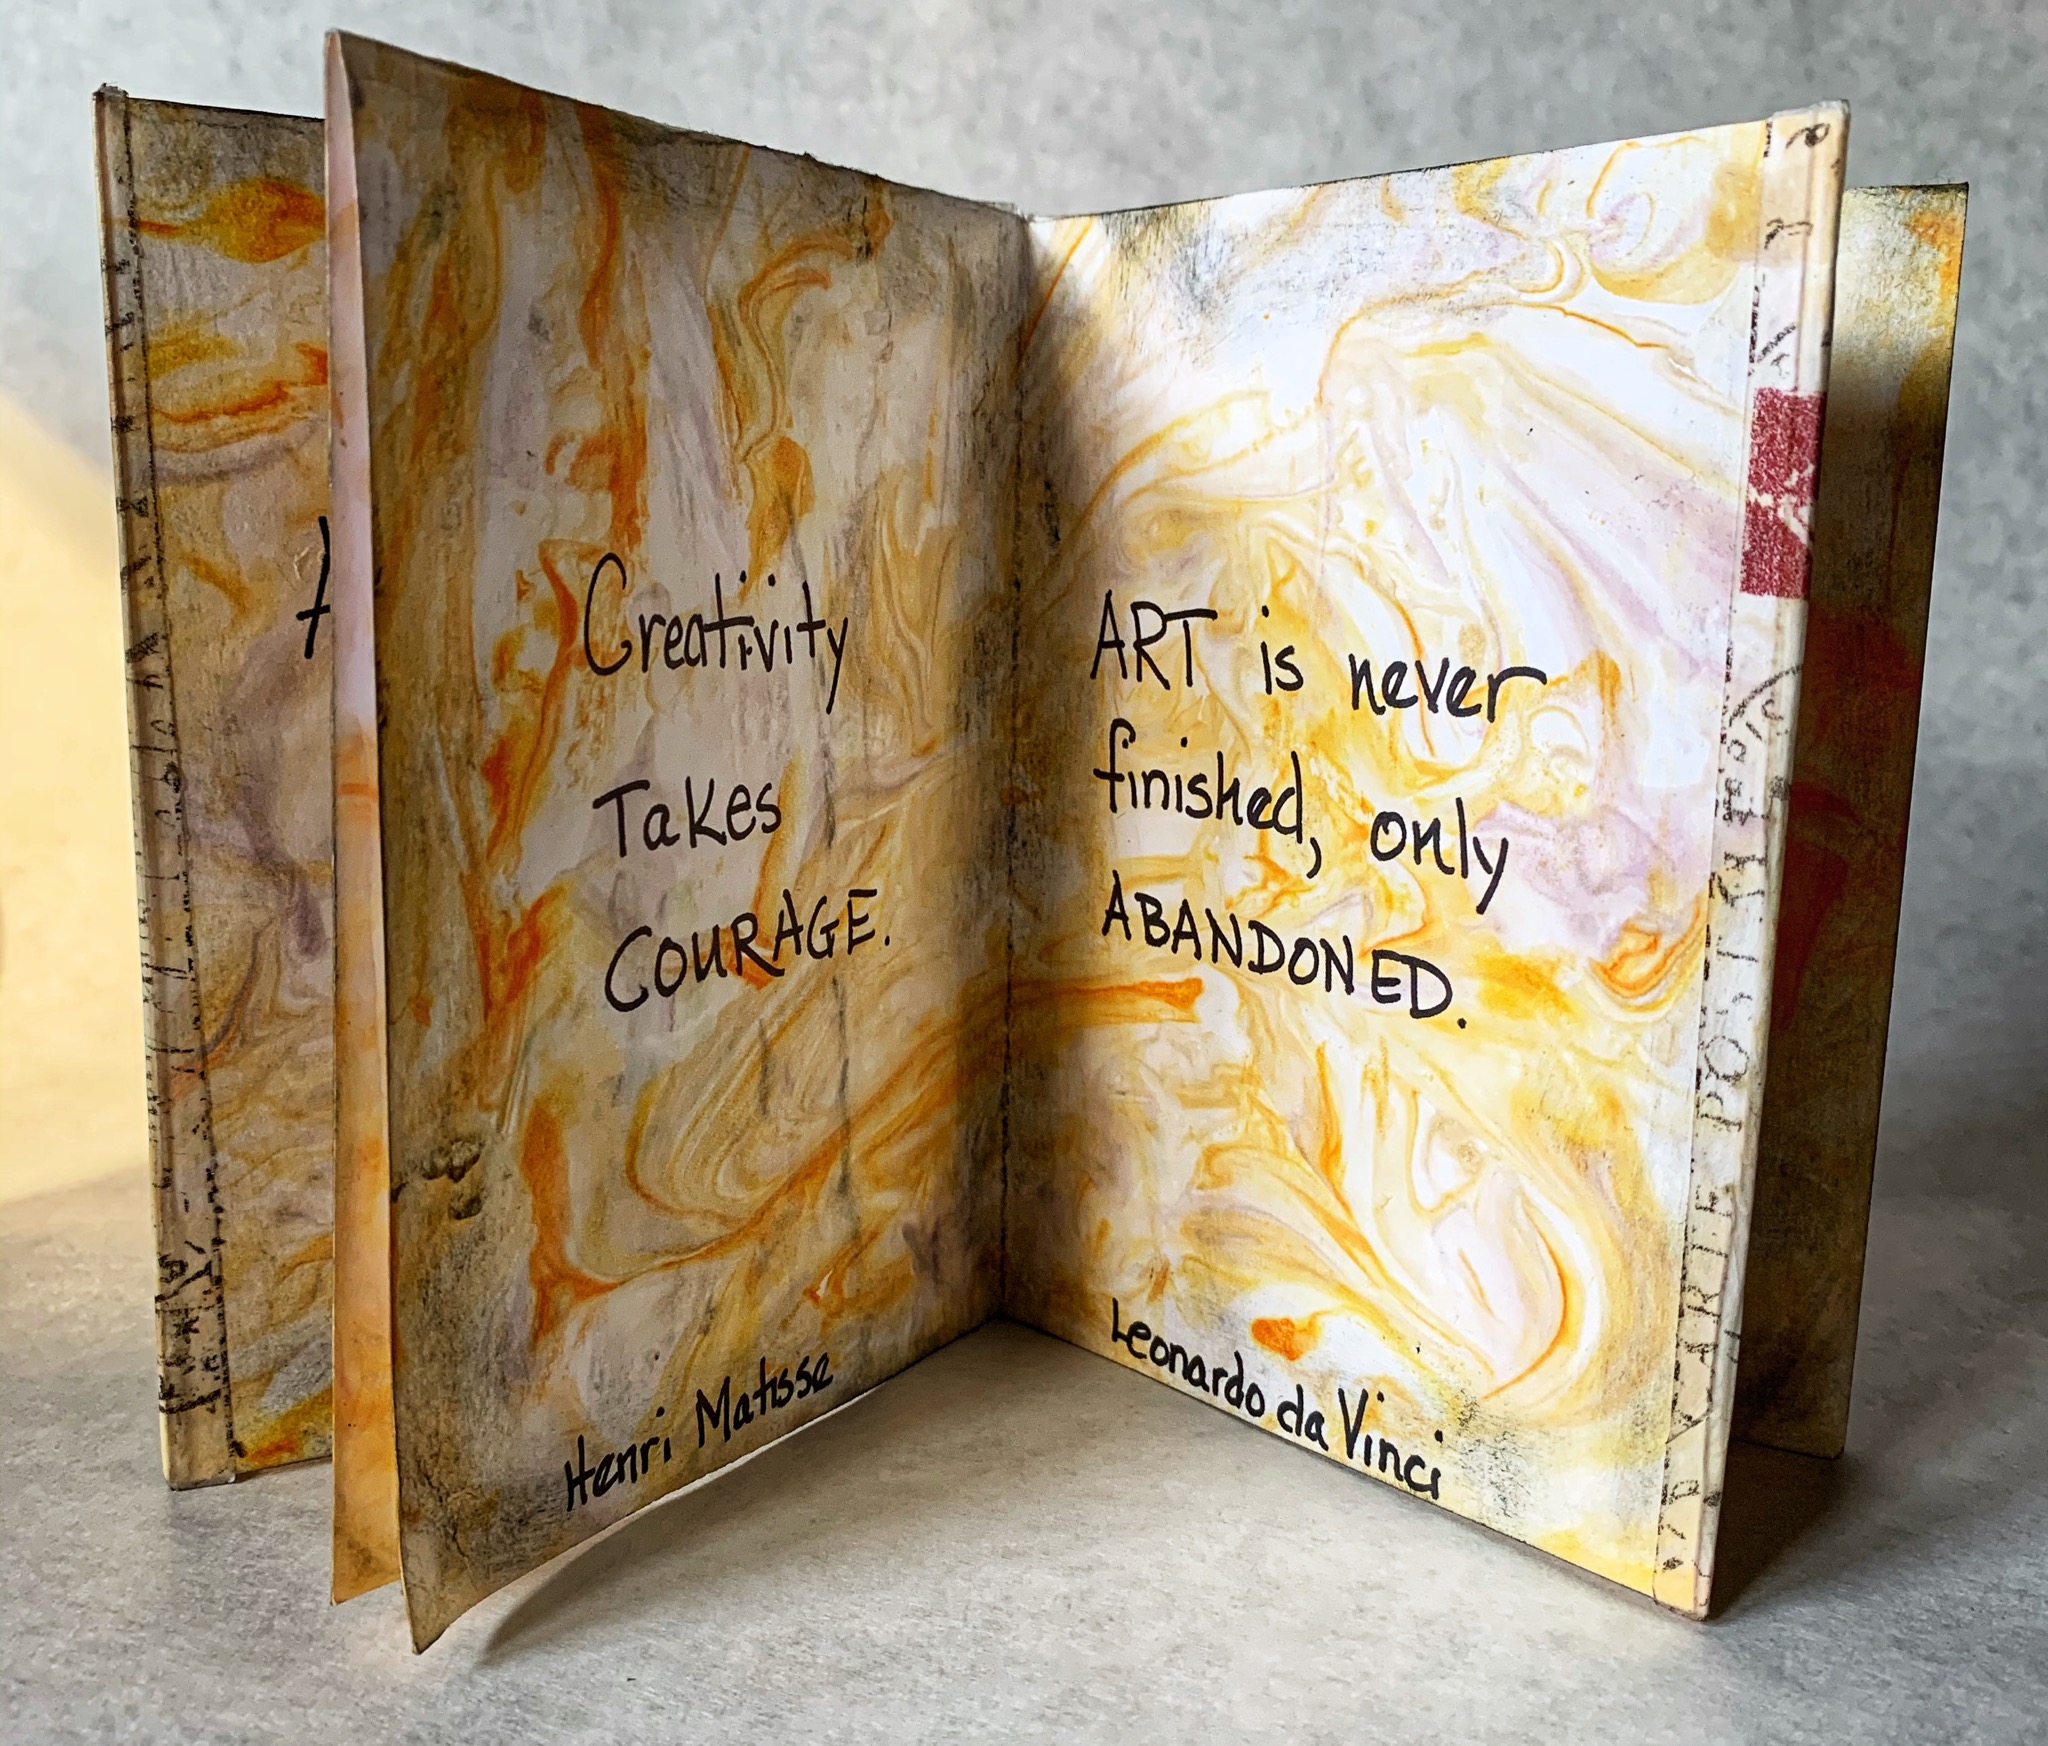 Creativity
Takes
COURAGE.
Henri Matisse
ART is never
finished, only
ABANDONED.
Leonardo da Vinci
CARTE POSTALE